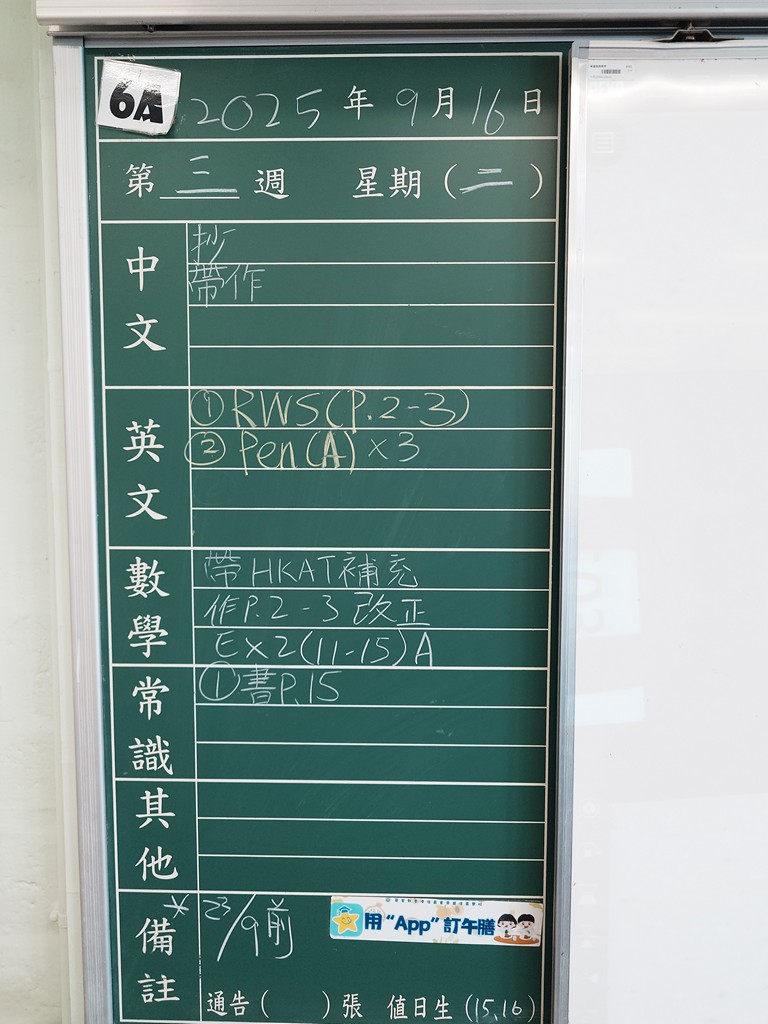 6A 2025年9月16日
第三週 星期(二)
中文
抄
帶作
英文
① RWS(P.2-3)
② Pen(A)×3
數學
帶HKAT補充
作P.2-3改正
EX2(11-15)A
常識
①書P.15
其他
備註
* 23/9前
用“App”訂午膳
通告( )張 值日生(15,16)